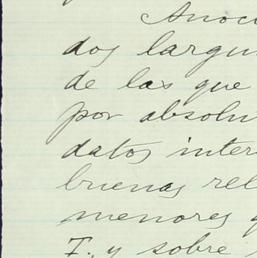 Anoc
dos largu
de las que
por absolu
datos inter
buenas rel
menores q
F., y sobre